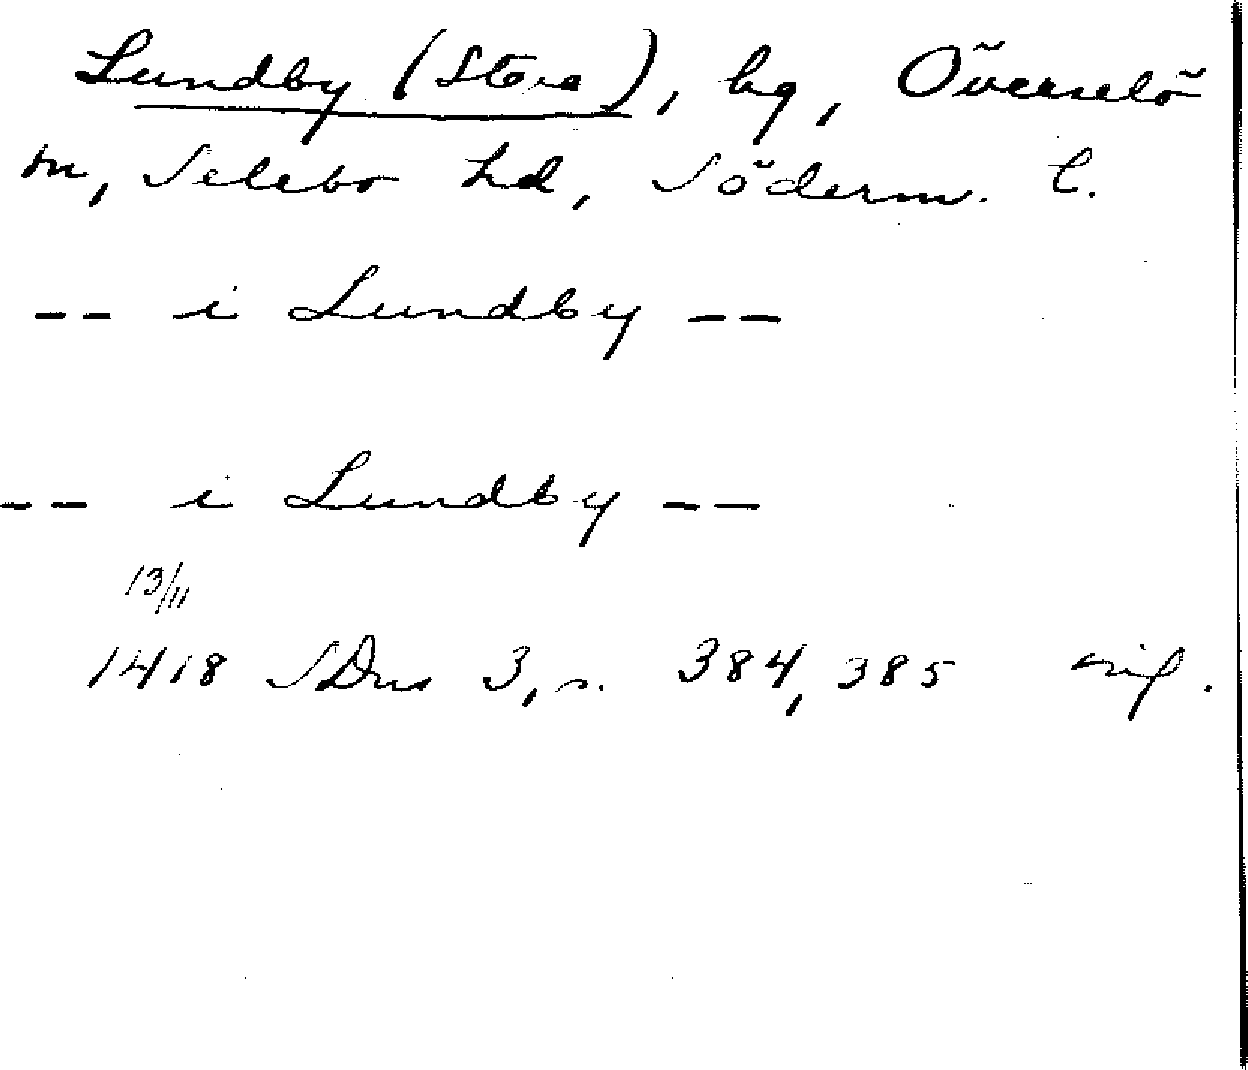 Lundby (Stora), by, Överselö
sn, Selebo hd, Söderm. l.
-- i Lundby --
-- i Lundby --
13/11
1418 SDns 3, s. 384, 385 orig.